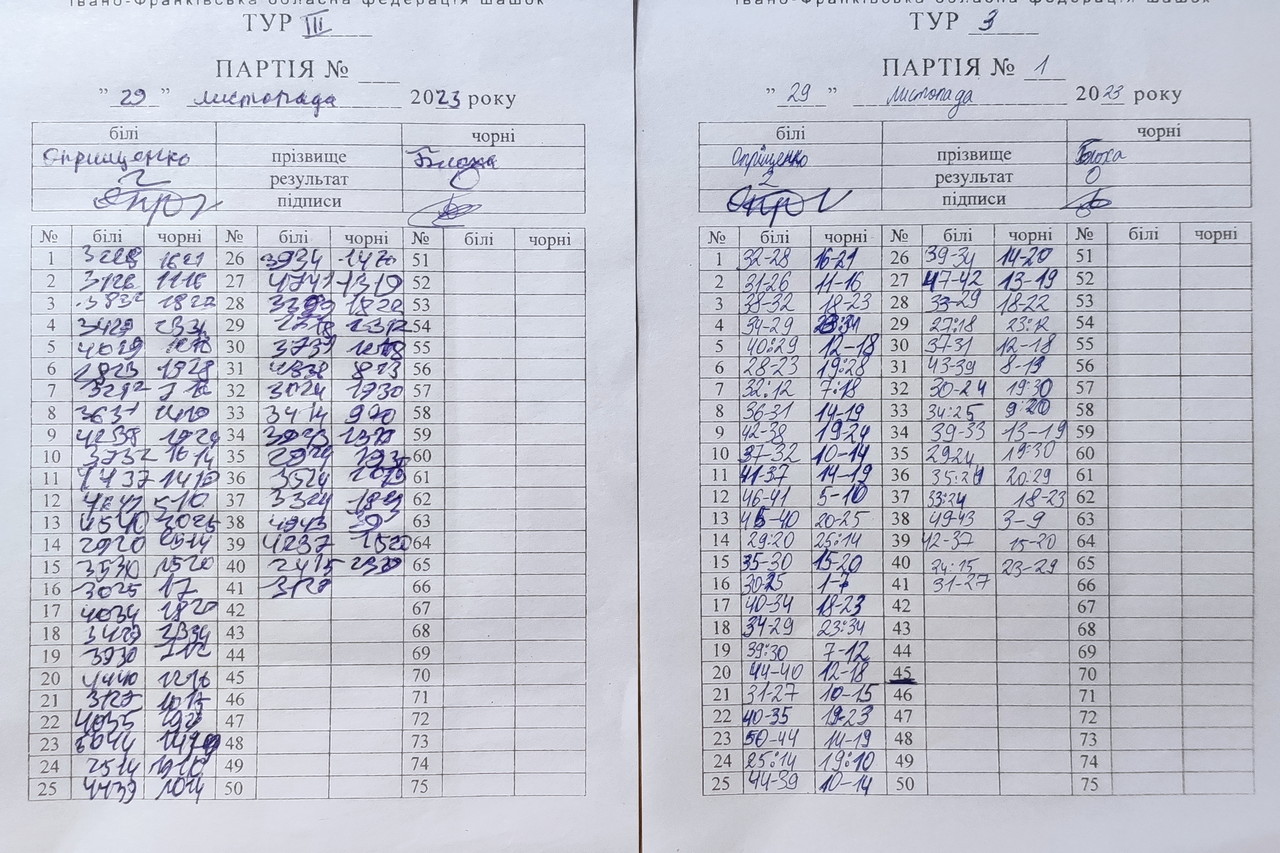 Івано-Франківська обласна федерація шашок
ТУР III
ПАРТІЯ №
" 29 " листопада 2023 року
білі чорні
Оприщенко прізвище Блоха
2 результат 0
підписи
№ білі чорні № білі чорні № білі чорні
1 3228 1621 26 3934 1420 51
2 3126 1116 27 4741 1319 52
3 3832 1822 28 3329 1822 53
4 3429 2334 29 2718 2312 54
5 4029 1218 30 3731 1218 55
6 2823 1928 31 4338 813 56
7 3212 718 32 3024 1930 57
8 3631 1419 33 3414 920 58
9 4238 1924 34 3933 1319 59
10 3732 1014 35 2924 1930 60
11 4137 1419 36 3524 2029 61
12 4641 510 37 3324 1823 62
13 4540 2025 38 4943 39 63
14 2920 2514 39 4237 1520 64
15 3530 1520 40 2415 2329 65
16 3025 17 41 3127 66
17 4034 1823 42 67
18 3429 2334 43 68
19 3930 712 44 69
20 4440 1218 45 70
21 3127 1015 46 71
22 4035 1923 47 72
23 5044 1419 48 73
24 2514 1910 49 74
25 4439 1014 50 75
Івано-Франківська обласна федерація шашок
ТУР 3
ПАРТІЯ № 1
" 29 " листопада 2023 року
білі чорні
Опріщенко прізвище Блоха
2 результат 0
підписи
№ білі чорні № білі чорні № білі чорні
1 32-28 16-21 26 39-34 14-20 51
2 31-26 11-16 27 47-42 13-19 52
3 38-32 18-23 28 33-29 18-22 53
4 34-29 23:34 29 27:18 23:12 54
5 40:29 12-18 30 37-31 12-18 55
6 28-23 19:28 31 43-39 8-13 56
7 32:12 7:18 32 30-24 19:30 57
8 36-31 14-19 33 34:25 9-20 58
9 42-38 19-24 34 39-33 13-19 59
10 37-32 10-14 35 2924 19:30 60
11 41-37 14-19 36 35:24 20:29 61
12 46-41 5-10 37 33:24 18-23 62
13 45-40 20-25 38 49-43 3-9 63
14 29:20 25:14 39 42-37 15-20 64
15 35-30 15-20 40 24:15 23-29 65
16 30-25 1-7 41 31-27 66
17 40-34 18-23 42 67
18 34-29 23:34 43 68
19 39:30 7-12 44 69
20 44-40 12-18 45 70
21 31-27 10-15 46 71
22 40-35 19-23 47 72
23 50-44 14-19 48 73
24 25:14 19:10 49 74
25 44-39 10-14 50 75